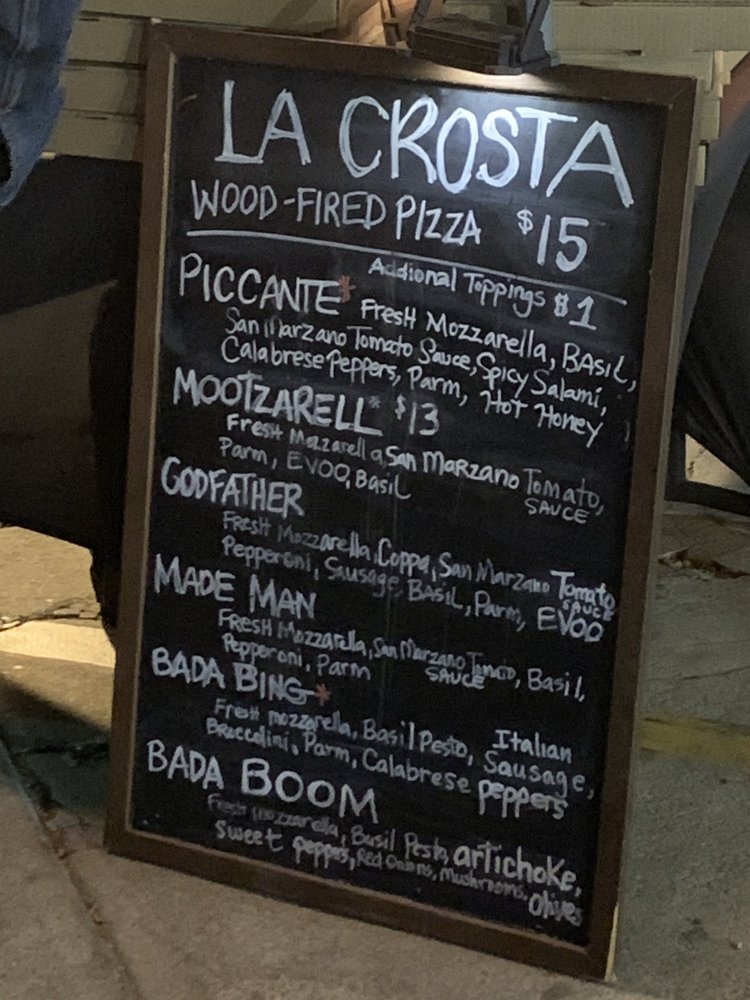 LA CROSTA
WOOD-FIRED PIZZA $15
Addional Toppings $1
PICCANTE* Fresh Mozzarella, BASIL,
San Marzano Tomato Sauce, Spicy Salami,
Calabrese Peppers, Parm, Hot Honey
MOOTZARELL* $13
Fresh Mozzarella, San MARZANO Tomato,
SAUCE
Parm, EVOO, Basil
GODFATHER
Fresh Mozzarella, Coppa, San Marzano Tomato
SAUCE
Pepperoni, Sausage, BASIL, Parm, EVOO
MADE MAN
FRESH Mozzarella, San Marzano Tomato, Basil,
SAUCE
Pepperoni, Parm
BADA BING*
Fresh mozzarella, Basil Pesto, Italian Sausage,
Broccolini, Parm, Calabrese Peppers
BADA BOOM
Fresh Mozzarella, Basil Pesto, artichoke,
Sweet peppers, Red Onions, Mushrooms, Olives